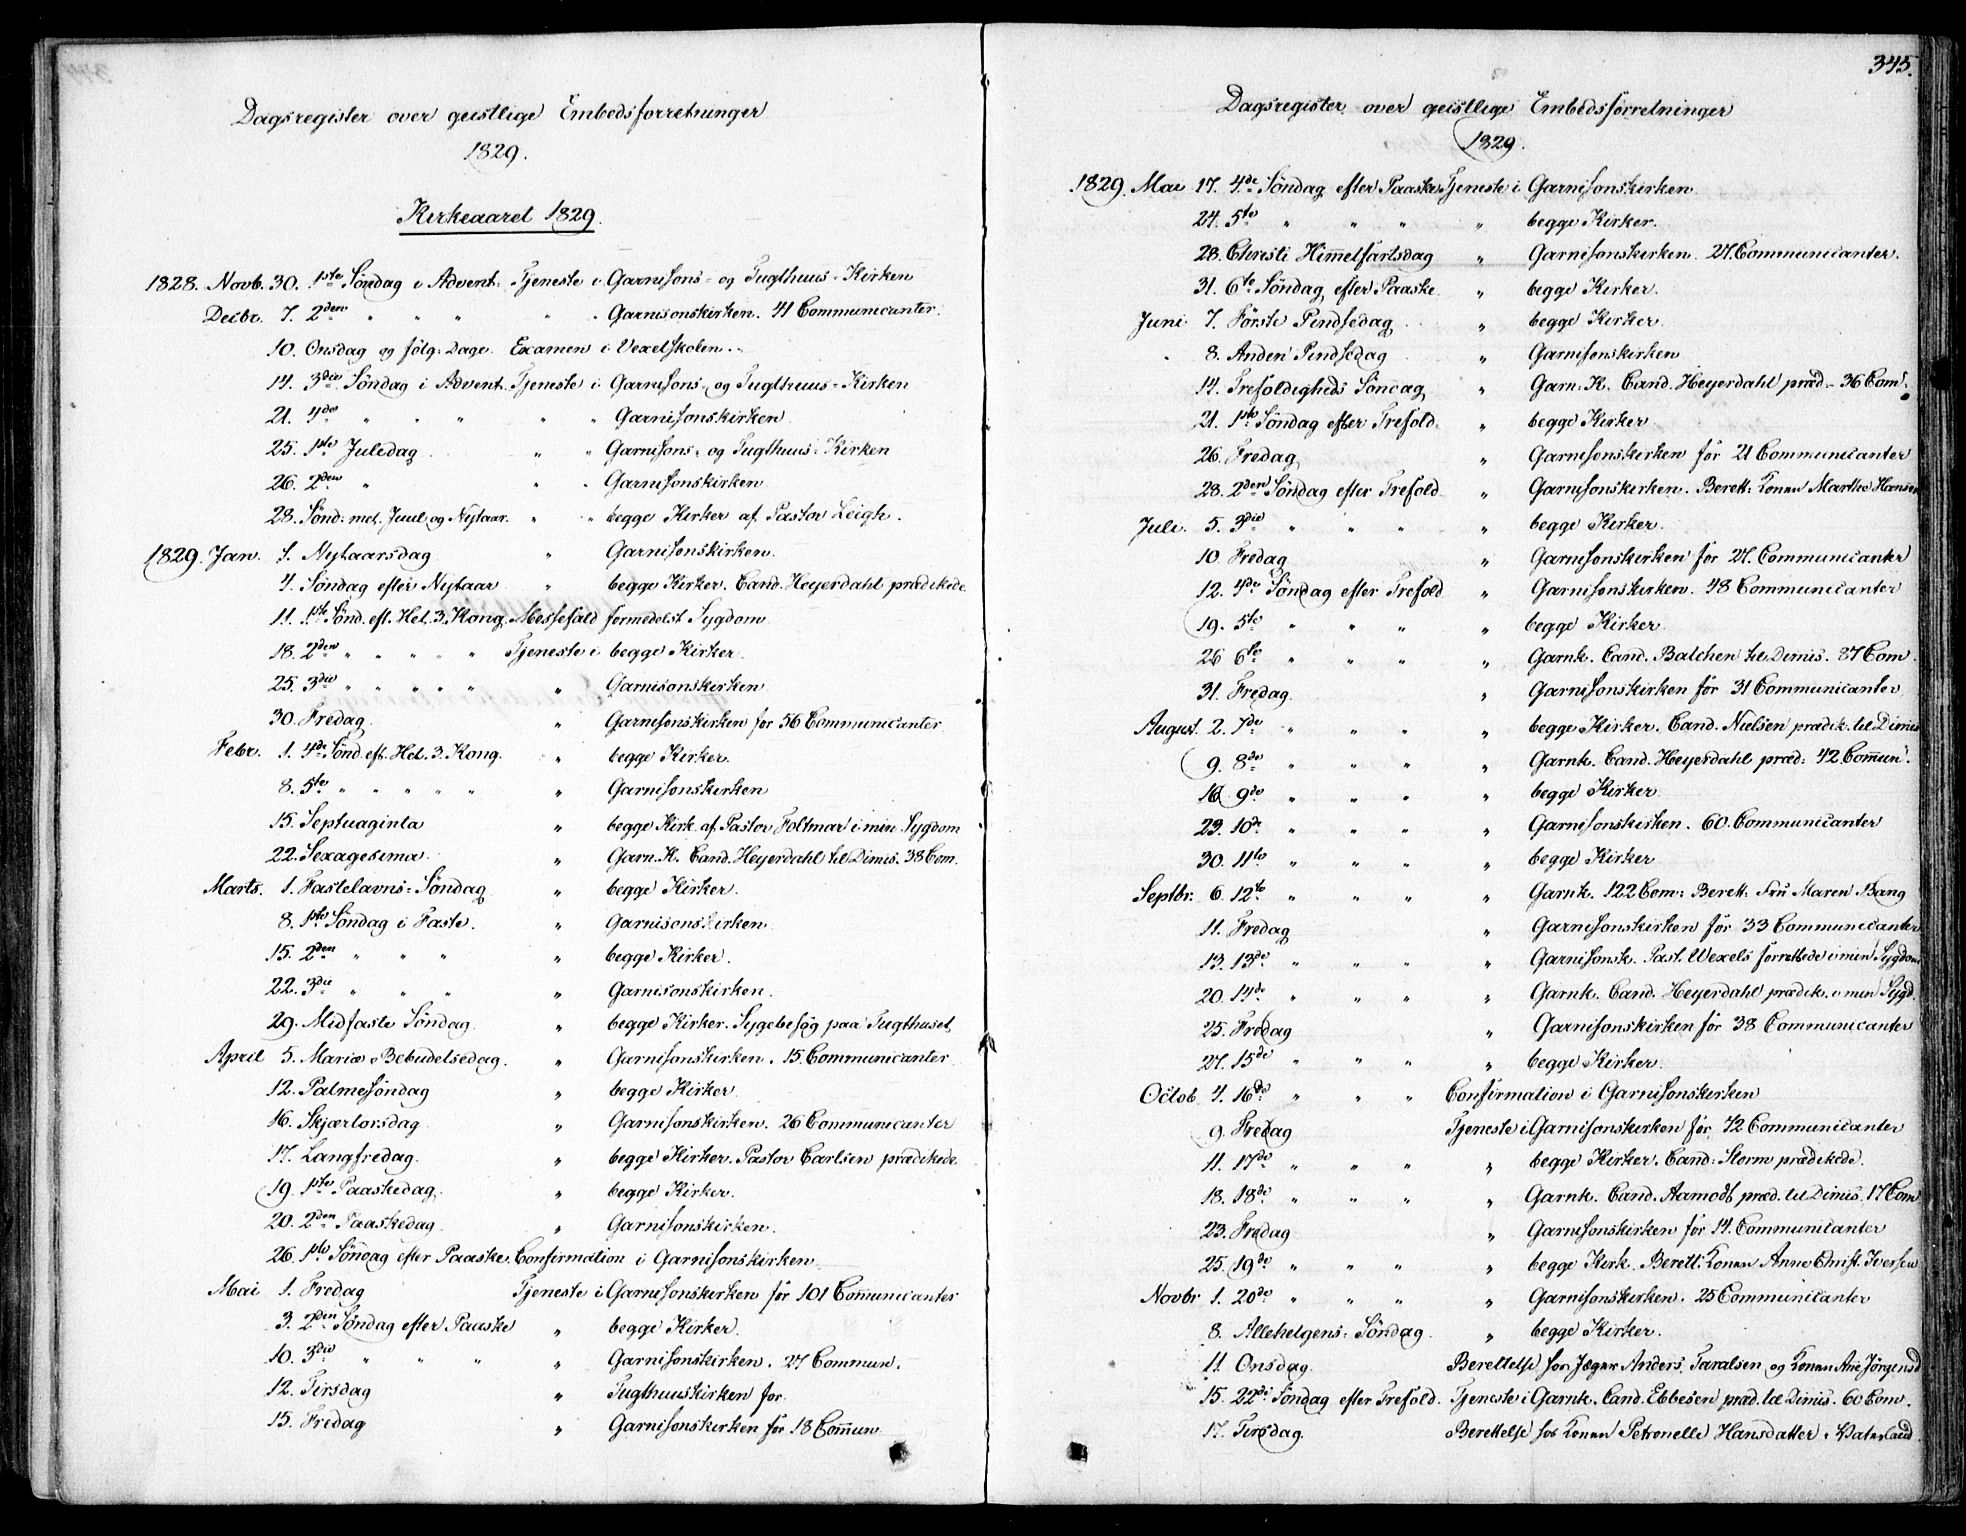 Dagsregister over geistlige Embedsforretninger
1829.
Kirkeaaret 1829.
1828. Novb. 30. 1ste Søndag i Advent. Tjeneste i Garnisons- og Tugthuus-Kirken
Decbr. 7. 2den " " " " " Garnisonskirken. 41 Communicanter.
10. Onsdag og følg. Dage. Examen i Vexelskolen.
14. 3die Søndag i Advent. Tjeneste i Garnisons- og Tugthuus-Kirken
21. 4de " " " " " Garnisonskirken
25. 1ste Juledag " " Garnisons- og Tugthuus-Kirken
26. 2den " " " Garnisonskirken
28. Sønd. mel. Juul og Nytaar. " " begge Kirker af Pastor Leigh.
1829. Jan. 1. Nytaarsdag " Garnisonskirken.
4. Søndag efter Nytaar " begge Kirker. Cand. Heyerdahl prædikede
11. 1ste Sønd. eft. Hel. 3. Kong. Messefald formedelst Sygdom
18. 2den " " " " " Tjeneste i begge Kirker.
25. 3die " " " " " " Garnisonskirken
30. Fredag " Garnisonskirken for 56 Communicanter
Febr. 1. 4de Sønd. eft. Hel. 3. Kong. " begge Kirker.
8. 5te " " " " " " Garnisonskirken
15. Septuaginta " begge Kirk. af Pastor Foltmar i min Sygdom
22. Sexagesima " Garn. K. Cand. Heyerdahl til Dimis. 38 Com.
Marts. 1. Fastelavns-Søndag " begge Kirker.
8. 1ste Søndag i Faste. " Garnisonskirken.
15. 2den " " " " begge Kirker.
22. 3die " " " " Garnisonskirken.
29. Midfaste Søndag " begge Kirker. Sygebesøg paa Tugthuset
April 5. Mariæ Bebudelsedag. " Garnisonskirken. 15 Communicanter
12. Palmesøndag " begge Kirker
16. Skjærtorsdag " Garnisonskirken. 26 Communicanter
17. Langfredag. " begge Kirker. Pastor Carlsen prædikede.
19. 1ste Paaskedag. " begge Kirker.
20. 2den Paaskedag. " Garnisonskirken.
26. 1ste Søndag efter Paaske. Confirmation i Garnisonskirken
Mai 1. Fredag Tjeneste i Garnisonskirken for 101 Communicanter
3. 2den Søndag efter Paaske " begge Kirker.
10. 3die " " " " Garnisonskirken. 27 Commun.
12. Tirsdag " Tugthuuskirken for
15. Fredag " Garnisonskirken for 18 Commun
345.
Dagsregister over geistlige Embedsforretninger
1829.
1829. Mai 17. 4de Søndag efter Paaske Tjeneste i Garnisonskirken
24. 5te " " " " begge Kirker.
28. Christi Himmelfartsdag " Garnisonskirken. 27. Communicanter.
31. 6te Søndag efter Paaske " begge Kirker.
Juni 7. Første Pindsedag " begge Kirker
8. Anden Pindsedag " Garnisonskirken
14. Trefoldigheds Søndag " Garn. K. Cand. Heyerdahl præd. 36 Com.
21. 1ste Søndag efter Trefold. " begge Kirker
26. Fredag " Garnisonskirken for 21 Communicanter
28. 2den Søndag efter Trefold. " Garnisonskirken. Berett: Konen Marthe Hansen
Juli. 5. 3die " " " " begge Kirker.
10. Fredag " Garnisonskirken for 27. Communicanter
12. 4de Søndag efter Trefold " Garnisonskirken. 48 Communicanter
19. 5te " " " " begge Kirker
26 6te " " " " Garnk. Cand. Balchen til Dimis. 87 Com.
31. Fredag. " Garnisonskirken for 31 Communicanter
August. 2. 7de " " " " begge Kirker. Cand. Nielsen prædik. til Dimis
9. 8de " " " " Garnk. Cand. Heyerdahl præd. 42 Commun.
16 9de " " " " begge Kirker
23. 10de " " " " Garnisonskirken. 60. Communicanter
30. 11te " " " " begge Kirker
Septbr. 6. 12te " " " " Garnk. 122 Com: Berett. Fru Maren Bang
11. Fredag " Garnisonskirken for 33 Communicanter
13. 13de " " " " Garnisonsk. Past. Wexels forrettede i min Sygdom
20. 14de " " " " Garnk. Cand. Heyerdahl prædik. i min Sygd.
25. Fredag " Garnisonskirken for 38 Communicanter
27. 15de " " " " begge Kirker.
Octob. 4. 16de " " " Confirmation i Garnisonskirken
9. Fredag Tjeneste i Garnisonskirken for 72 Communicanter
11. 17de " " " " begge Kirker. Cand. Storm prædikede.
18. 18de " " " " Garnk. Cand. Aamodt præd. til Dimis. 17 Com
23. Fredag " Garnisonskirken for 14. Communicanter
25. 19de " " " " begge Kirk. Berett. Konen Anne Christ. Iversen
Novbr. 1. 20de " " " " Garnisonskirken. 25 Communicanter
8. Allehelgens-Søndag. " begge Kirker.
11. Onsdag. Berettelse for Jæger Anders Taralsen og Konen Ane Jørgensd
15. 22de Søndag efter Trefold. Tjeneste i Garnk. Cand. Ebbesen præd. til Dimis. 60 Com.
17. Tirsdag. Berettelse for Konen Petronelle Hansdatter i Vaterland